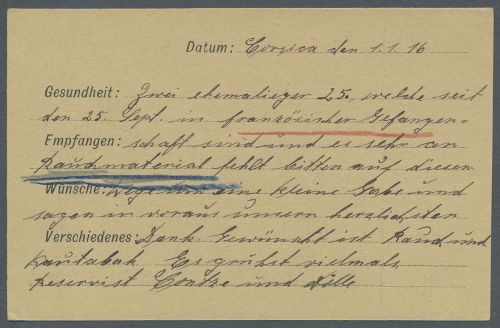 Datum: Corsica den 1.1.16
Gesundheit: Zwei ehemalieger 25., welche seit
den 25. Sept. in französischer Gefangen-
Empfangen: schaft sind und es sehr an
Rauchmaterial fehlt bitten auf diesen
Wünsche: Wege um eine kleine Gabe und
sagen in voraus unsern herzlichsten
Verschiedenes: Dank. Gewünscht ist Rauch und
Kautabak. Es grüßt vielmals
Reservist und